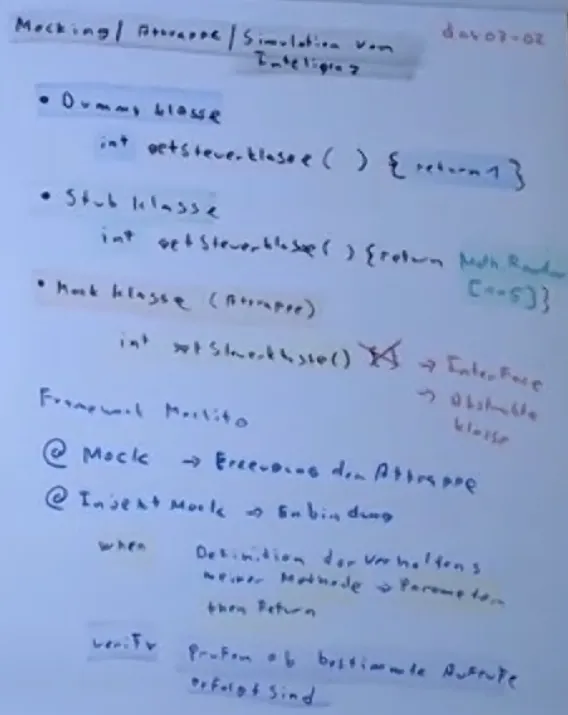 Mocking / Attrappe / Simulation von
Inteligenz
dav 07-02
• Dummy klasse
int getSteuerklasse ( ) { return 1 }
• Stub klasse
int getSteuerklasse( ) {return Math Random
[1-5]}
• Mock klasse (Attrappe)
int getSteuerklasse() → Interface
→ Abstrakte
klasse
Framework Mockito
@ Mock → Erzeugung der Attrappe
@ Injekt Mock → Einbindung
when Definition der Verhaltens
meiner Methode → Parameter
then Return
verify Prüfen ob bestimmte Aufrufe
erfolgt sind